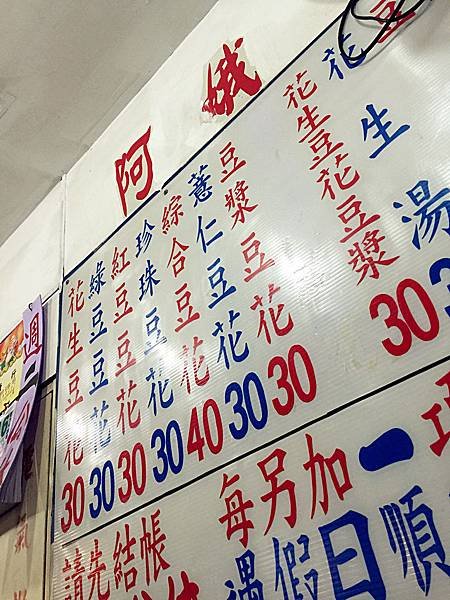 阿娥
花生豆花 30
綠豆豆花 30
紅豆豆花 30
珍珠豆花 30
綜合豆花 40
薏仁豆花 30
豆漿豆花 30
花生豆花豆漿 30
花生湯
豆
每另加一
請先結帳
遇假日順
週一